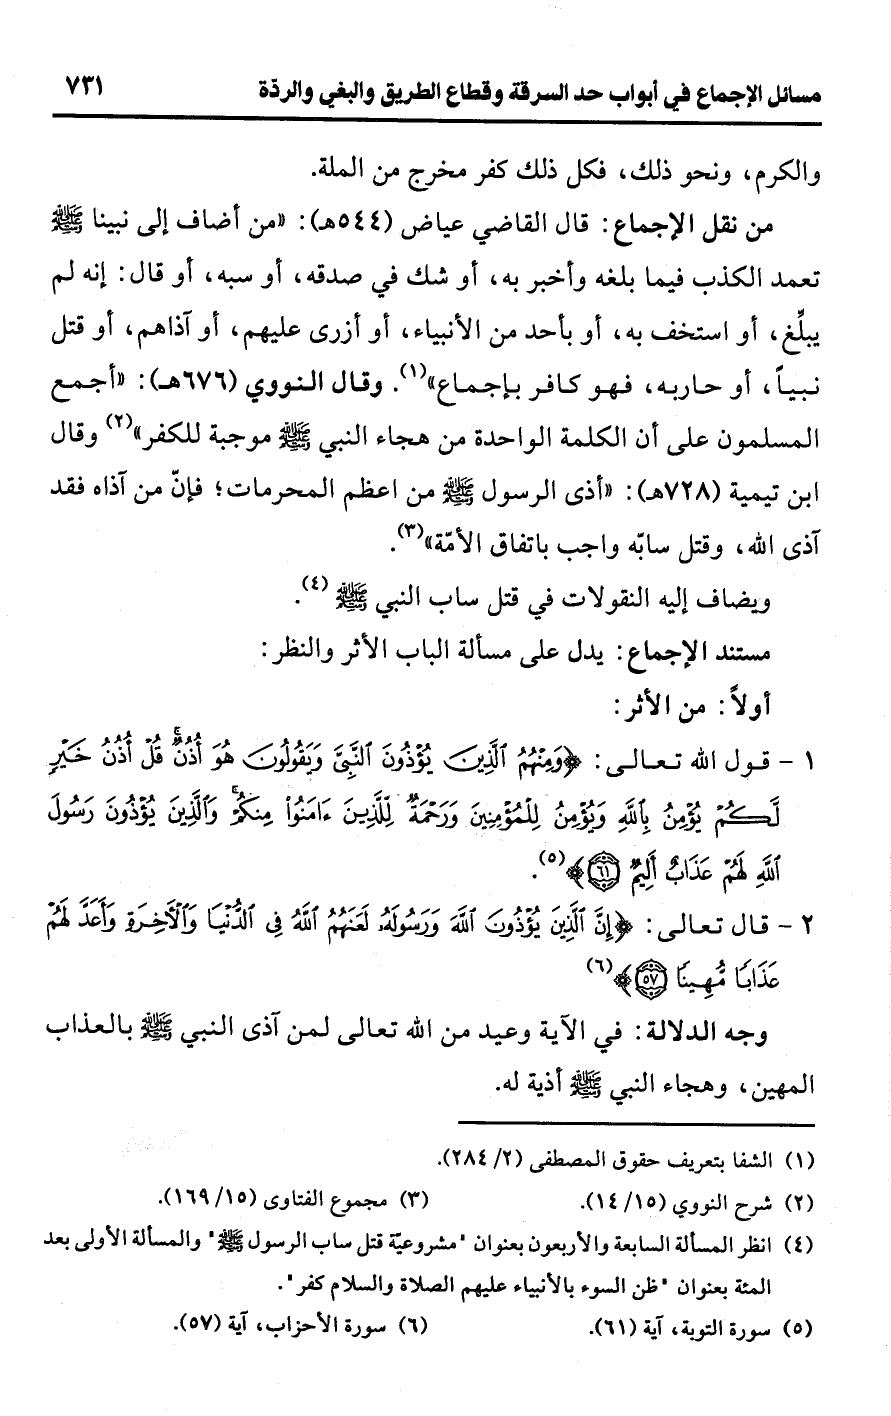 مسائل الإجماع في أبواب حد السرقة وقطاع الطريق والبغي والردّة ٧٣١
والكرم، ونحو ذلك، فكل ذلك كفر مخرج من الملة.
من نقل الإجماع: قال القاضي عياض (٥٤٤هـ): «من أضاف إلى نبينا ﷺ
تعمد الكذب فيما بلغه وأخبر به، أو شك في صدقه، أو سبه، أو قال: إنه لم
يبلِّغ، أو استخف به، أو بأحد من الأنبياء، أو أزرى عليهم، أو آذاهم، أو قتل
نبياً، أو حاربه، فهو كافر بإجماع»(١). وقال النووي (٦٧٦هـ): «أجمع
المسلمون على أن الكلمة الواحدة من هجاء النبي ﷺ موجبة للكفر»(٢) وقال
ابن تيمية (٧٢٨هـ): «أذى الرسول ﷺ من اعظم المحرمات؛ فإنّ من آذاه فقد
آذى الله، وقتل سابّه واجب باتفاق الأمّة»(٣).
ويضاف إليه النقولات في قتل ساب النبي ﷺ (٤).
مستند الإجماع: يدل على مسألة الباب الأثر والنظر:
أولاً: من الأثر:
١ - قول الله تعالى: ﴿وَمِنْهُمُ ٱلَّذِينَ يُؤْذُونَ ٱلنَّبِىَّ وَيَقُولُونَ هُوَ أُذُنٌ ۚ قُلْ أُذُنُ خَيْرٍ
لَّكُمْ يُؤْمِنُ بِٱللَّهِ وَيُؤْمِنُ لِلْمُؤْمِنِينَ وَرَحْمَةٌ لِّلَّذِينَ ءَامَنُوا۟ مِنكُمْ ۚ وَٱلَّذِينَ يُؤْذُونَ رَسُولَ
ٱللَّهِ لَهُمْ عَذَابٌ أَلِيمٌ ٦١﴾(٥).
٢ - قال تعالى: ﴿إِنَّ ٱلَّذِينَ يُؤْذُونَ ٱللَّهَ وَرَسُولَهُۥ لَعَنَهُمُ ٱللَّهُ فِى ٱلدُّنْيَا وَٱلْءَاخِرَةِ وَأَعَدَّ لَهُمْ
عَذَابًا مُّهِينًا ٥٧﴾(٦)
وجه الدلالة: في الآية وعيد من الله تعالى لمن آذى النبي ﷺ بالعذاب
المهين، وهجاء النبي ﷺ أذية له.
(١) الشفا بتعريف حقوق المصطفى (٢/ ٢٨٤).
(٢) شرح النووي (١٥/ ١٤). (٣) مجموع الفتاوى (١٥/ ١٦٩).
(٤) انظر المسألة السابعة والأربعون بعنوان "مشروعيّة قتل ساب الرسول ﷺ" والمسألة الأولى بعد
المئة بعنوان "ظن السوء بالأنبياء عليهم الصلاة والسلام كفر".
(٥) سورة التوبة، آية (٦١). (٦) سورة الأحزاب، آية (٥٧).